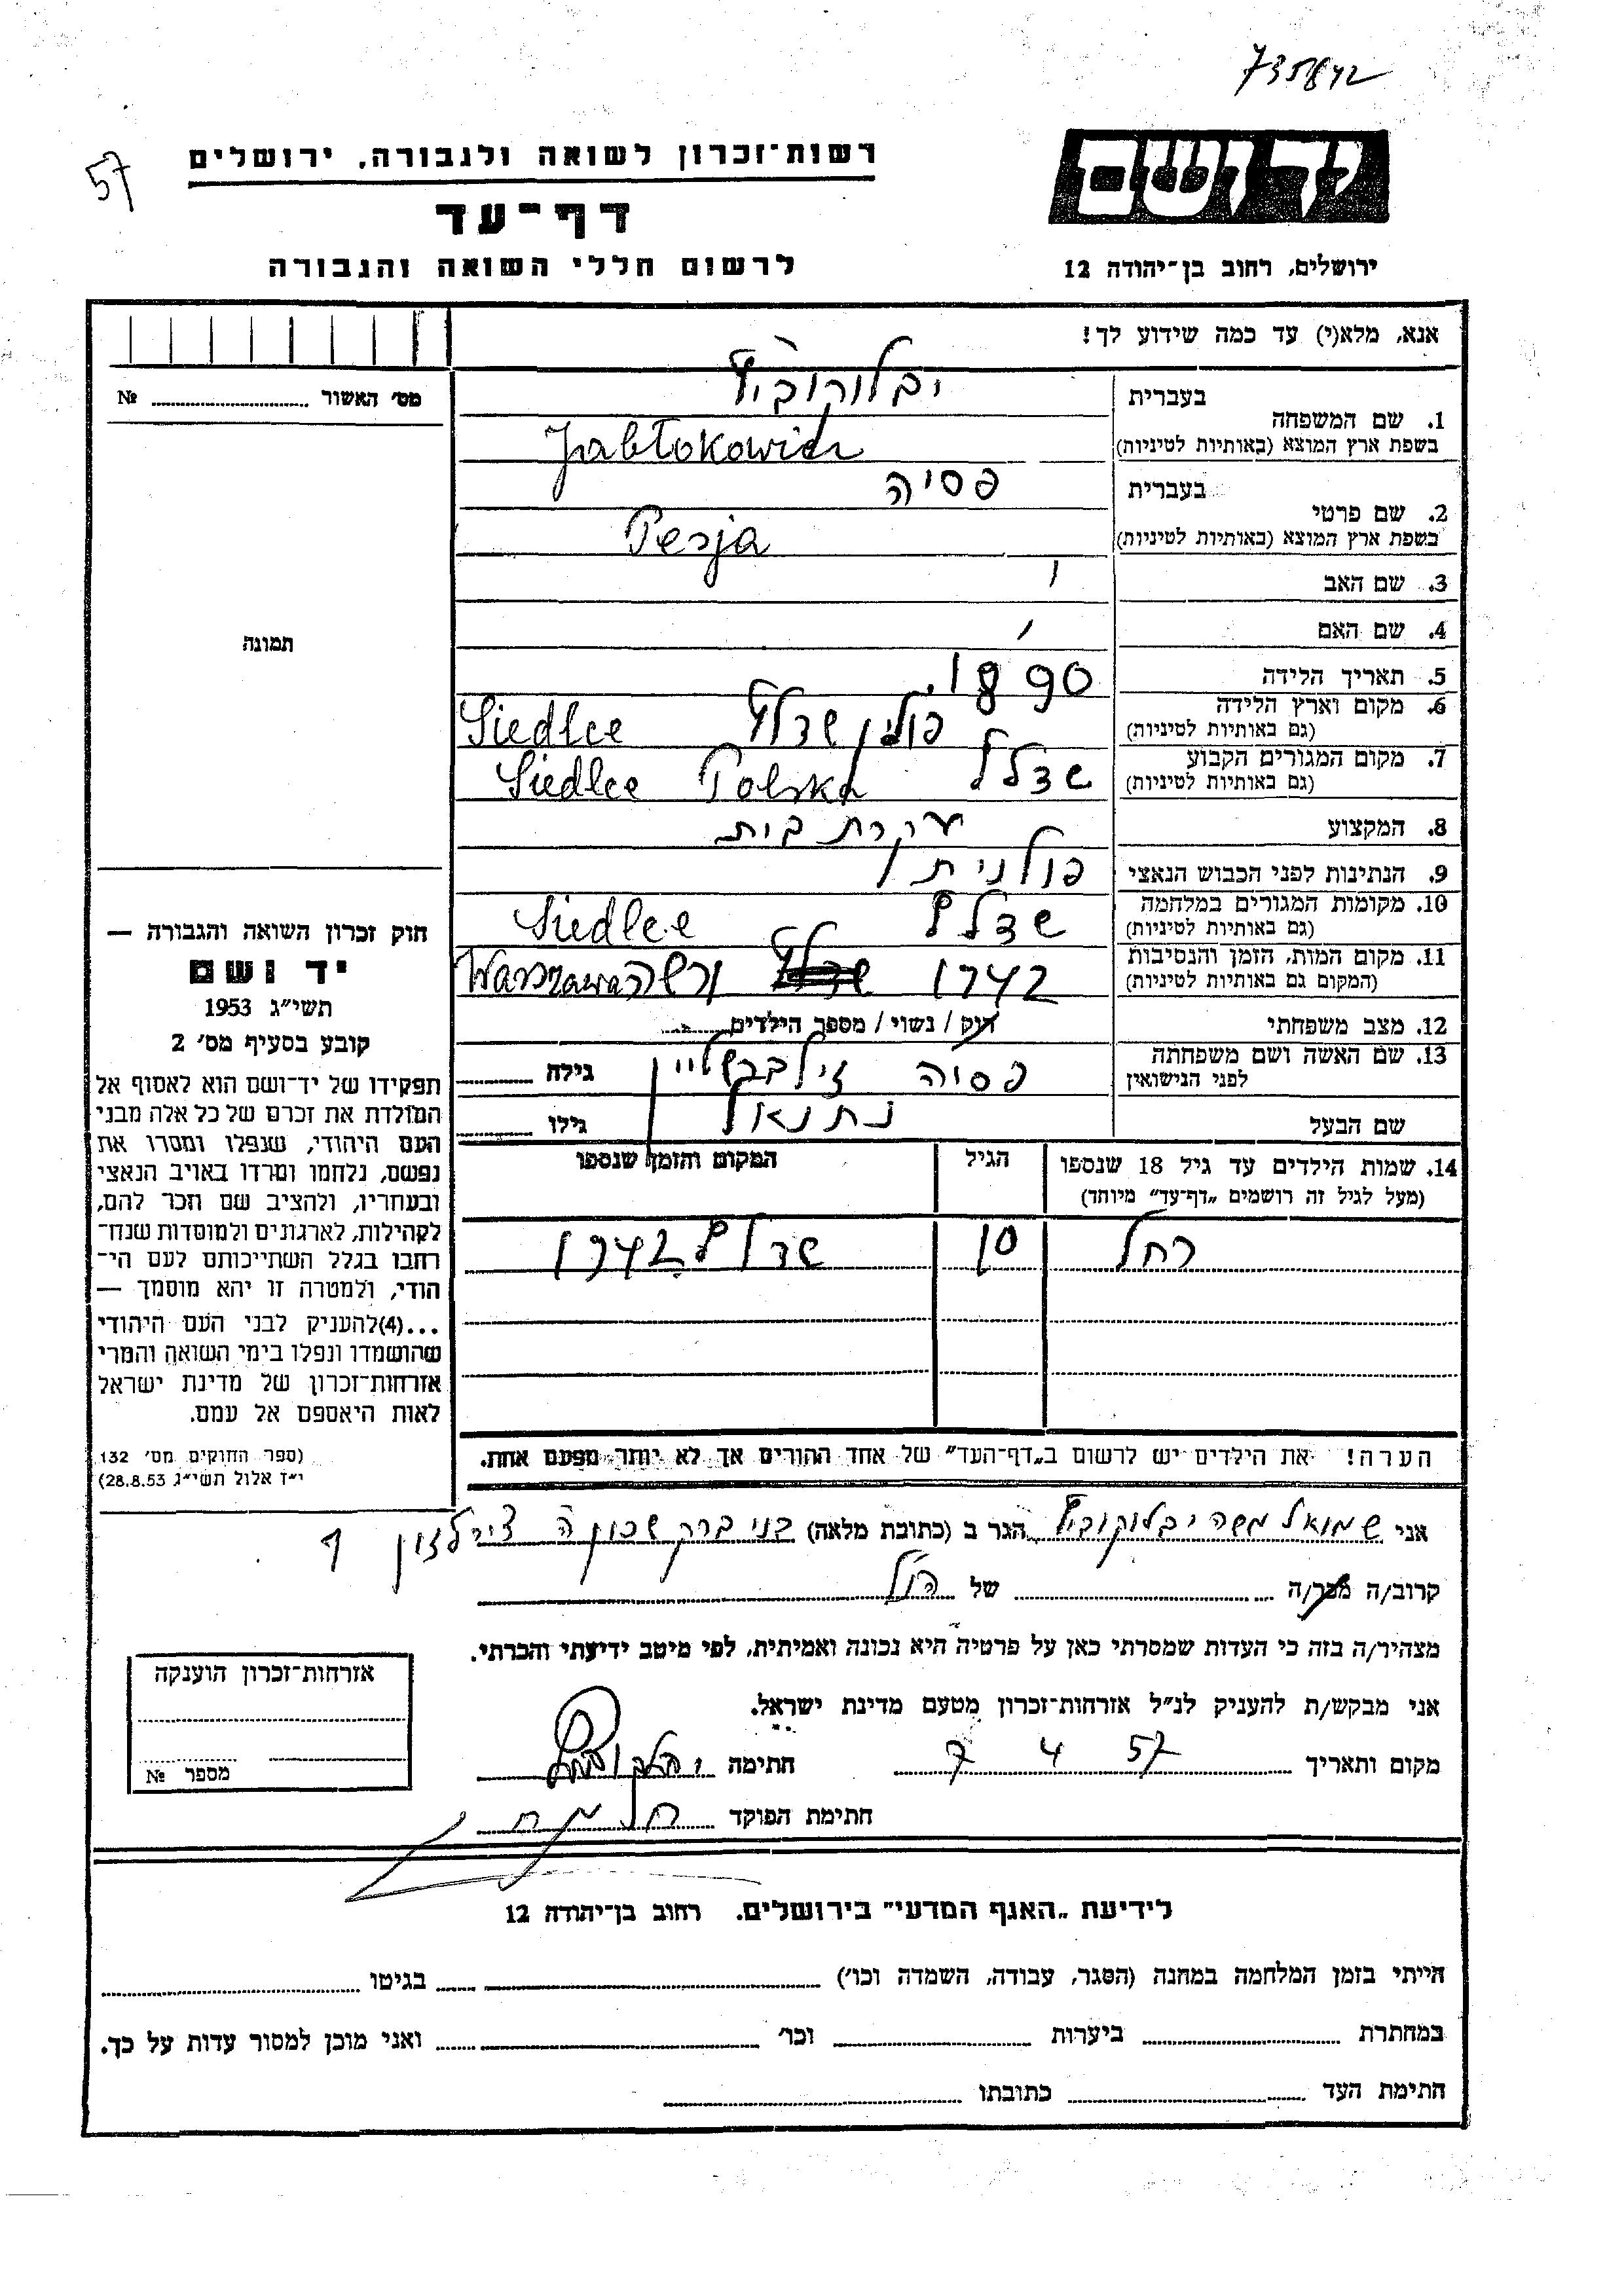 735842
57
רשות־זכרון לשואה ולגבורה, ירושלים
יד ושם
דף־עד
לרשום חללי השואה והגבורה
ירושלים, רחוב בן־יהודה 12
אנא, מלא(י) עד כמה שידוע לך!
מס׳ האשור № 
1. שם המשפחה בעברית יבלוקוביץ
בשפת ארץ המוצא (באותיות לטיניות) Jabłokowicz
2. שם פרטי בעברית פסיה
בשפת ארץ המוצא (באותיות לטיניות) Pesja
3. שם האב
4. שם האם
תמונה
5. תאריך הלידה 1890
6. מקום וארץ הלידה (גם באותיות לטיניות) פולין שדלץ Siedlce
7. מקום המגורים הקבוע (גם באותיות לטיניות) שדלץ Siedlce Polska
8. המקצוע עקרת בית
9. הנתינות לפני הכבוש הנאצי פולנית
10. מקומות המגורים במלחמה (גם באותיות לטיניות) שדלץ Siedlce
11. מקום המות, הזמן והנסיבות (המקום גם באותיות לטיניות) 1942 ורשה Warszawa
12. מצב משפחתי רוק / נשוי / מספר הילדים
13. שם האשה ושם משפחתה לפני הנישואין פסיה זילברשטיין גילה
שם הבעל נתנאל גילו
14. שמות הילדים עד גיל 18 שנספו (מעל לגיל זה רושמים „דף־עד״ מיוחד) הגיל המקום והזמן שנספו
רחל 10 שדלץ 1942
הערה! את הילדים יש לרשום ב„דף־העד״ של אחד ההורים אך לא יותר מפעם אחת.
חוק זכרון השואה והגבורה —
יד ושם
תשי״ג 1953
קובע בסעיף מס׳ 2
תפקידו של יד־ושם הוא לאסוף אל
המולדת את זכרם של כל אלה מבני
העם היהודי, שנפלו ומסרו את
נפשם, נלחמו ומרדו באויב הנאצי
ובעוזריו, ולהציב שם וזכר להם,
לקהילות, לארגונים ולמוסדות שנח־
רחבו בגלל השתייכותם לעם הי־
הודי, ולמטרה זו יהא מוסמך —
...(4)להעניק לבני העם היהודי
שהושמדו ונפלו בימי השואה והמרי
אזרחות־זכרון של מדינת ישראל
לאות היאספם אל עמם.
(ספר החוקים מס׳ 132
י״ז אלול תשי״ג 28.8.53)
אני שמואל משה יבלוקוביץ הגר ב (כתובת מלאה) בני ברק שכונה ה
קרוב/ה מכר/ה של הנ״ל
מצהיר/ה בזה כי העדות שמסרתי כאן על פרטיה היא נכונה ואמיתית, לפי מיטב ידיעתי והכרתי.
אני מבקש/ת להעניק לנ״ל אזרחות־זכרון מטעם מדינת ישראל.
מקום ותאריך 7 4 57 חתימה
חתימת הפוקד
אזרחות־זכרון הוענקה
מספר №
לידיעת „האגף המדעי״ בירושלים, רחוב בן־יהודה 12
הייתי בזמן המלחמה במחנה (הסגר, עבודה, השמדה וכו׳) בגיטו
במחתרת ביערות וכו׳ ואני מוכן למסור עדות על כך.
חתימת העד כתובתו